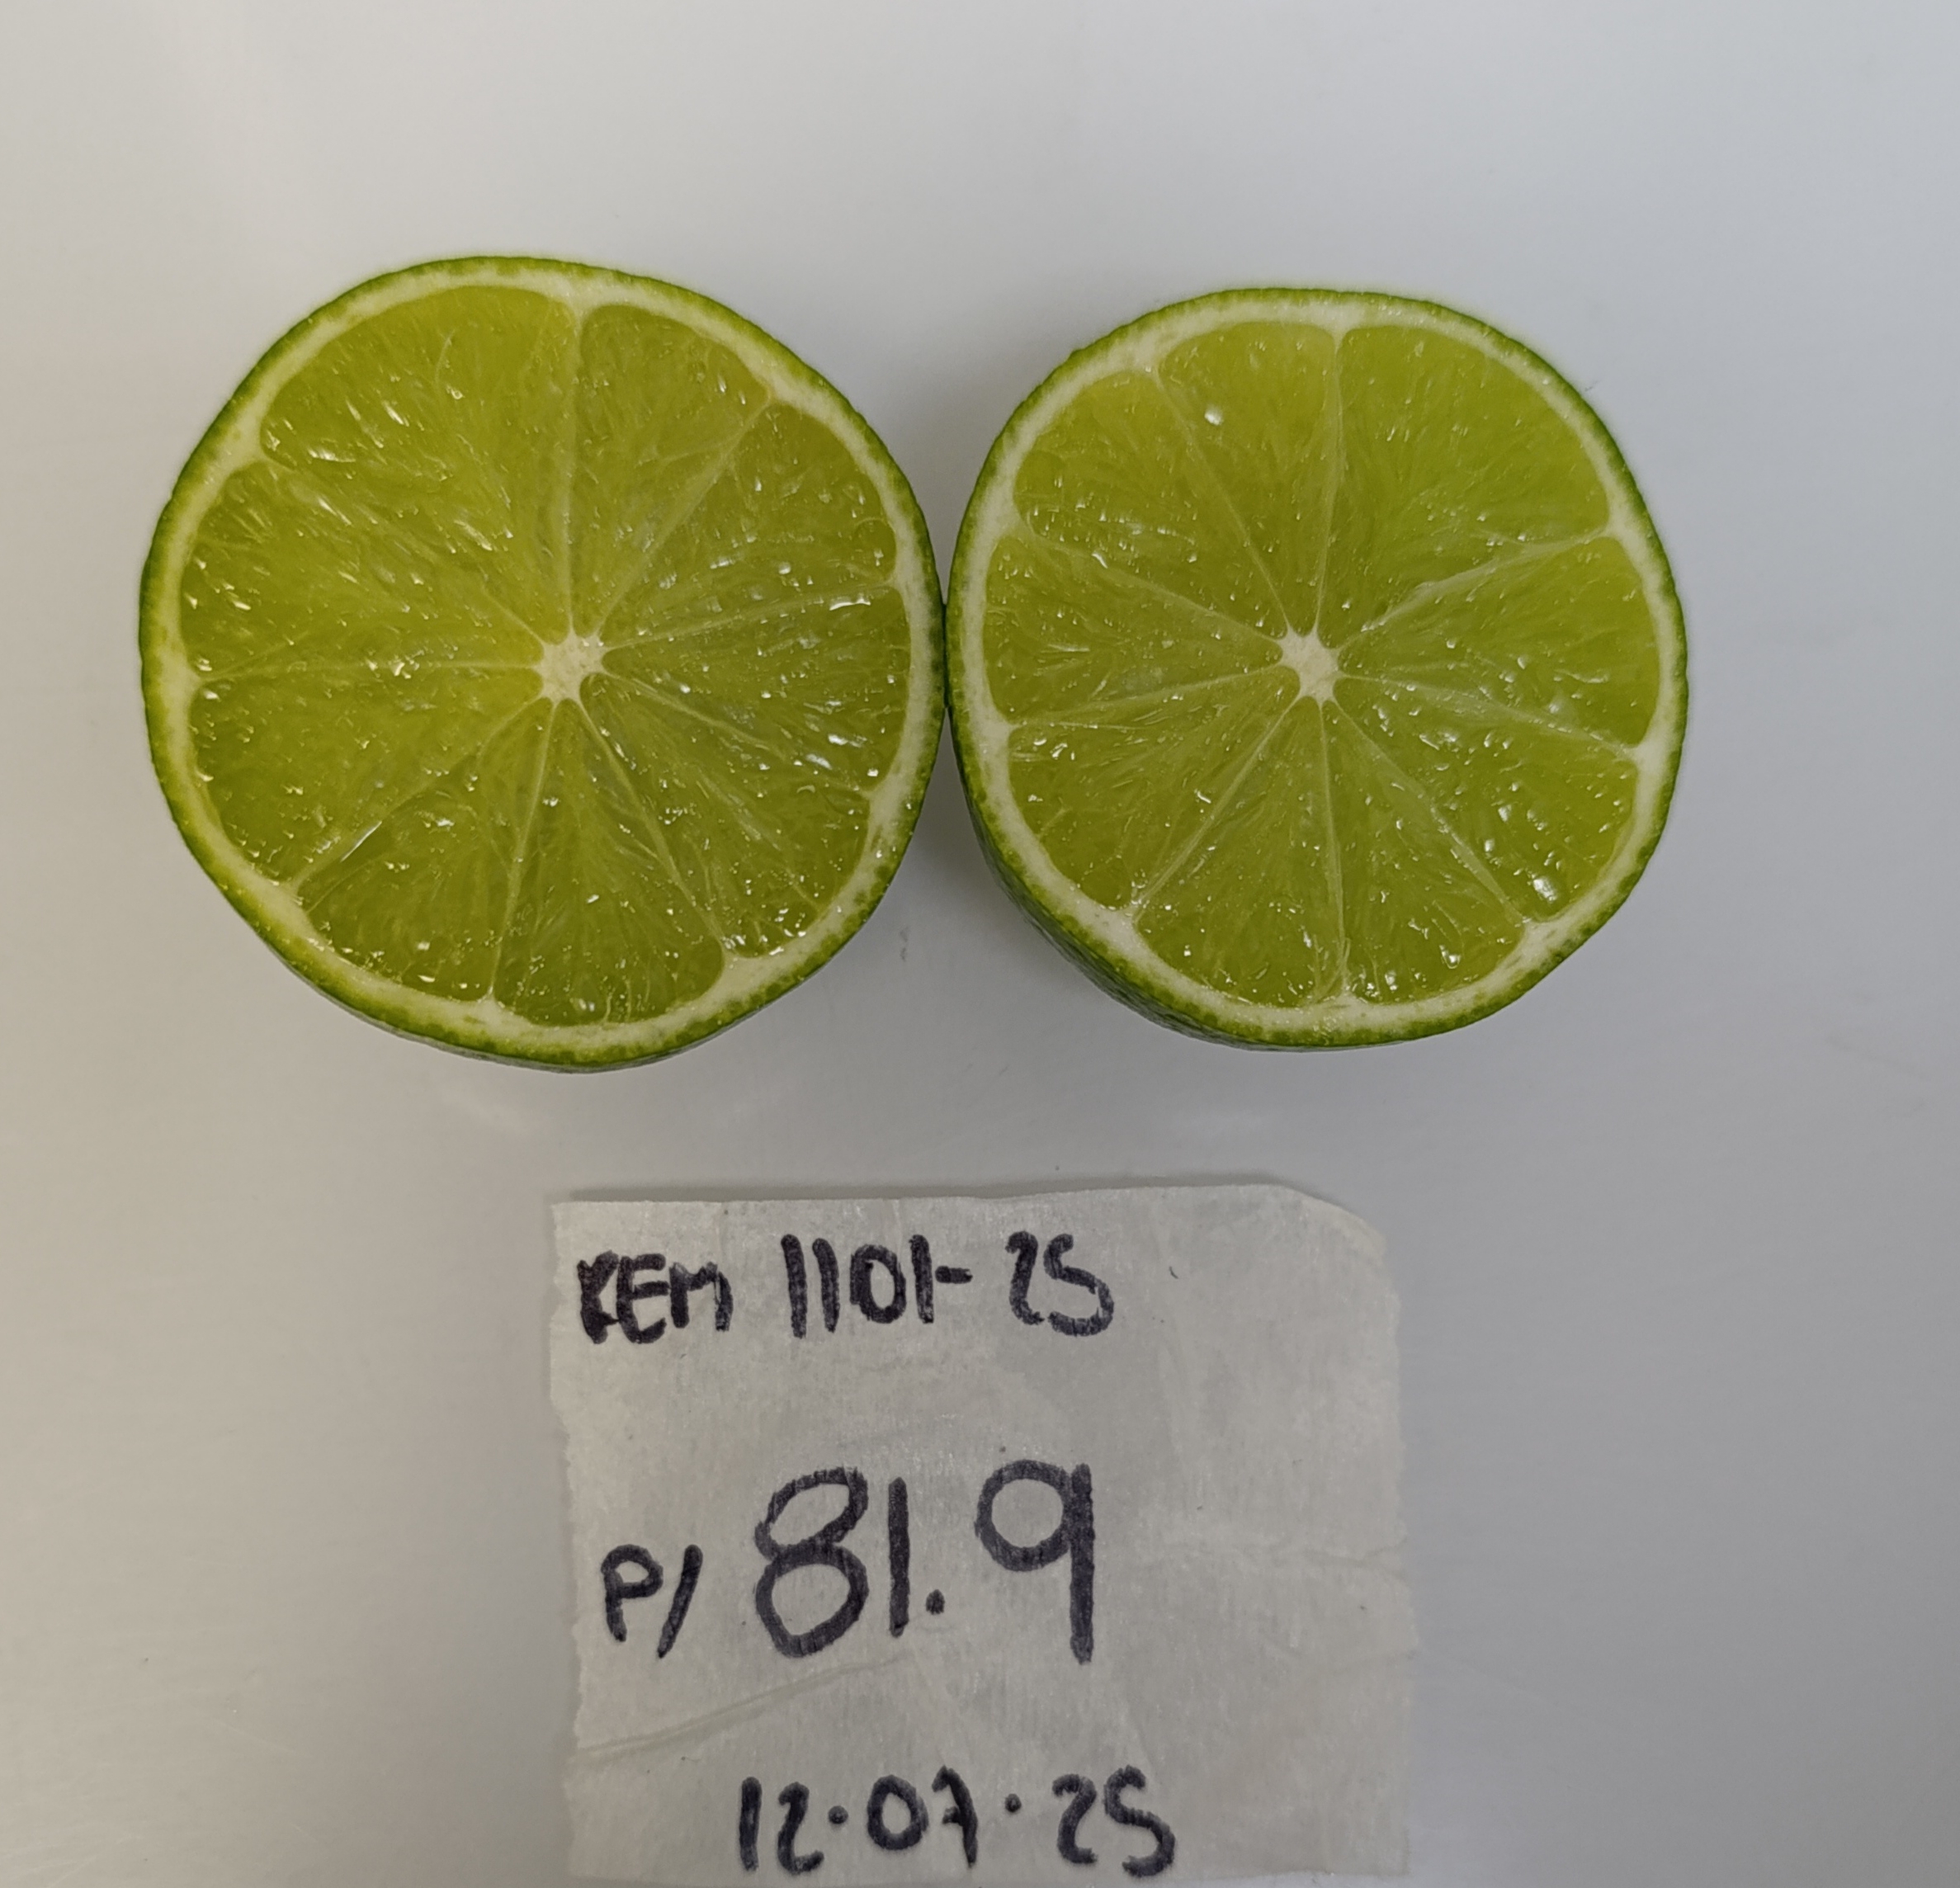 REM 1101-25
P/ 81.9
12.07.25